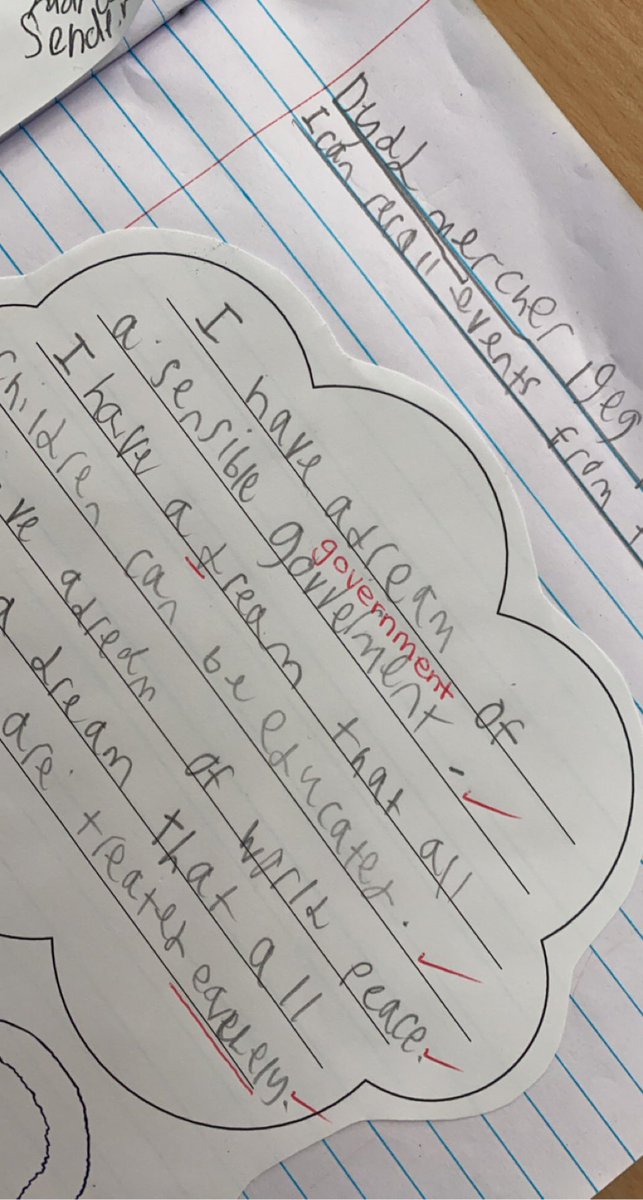 Sendi
Dydd mercher 19eg
I can recall events from t
I have a dream of
government
a sensible govvelment.
I have a dream that all
children can be educated.
ve a dream of world peace.
a dream that all
are treated eaverely.